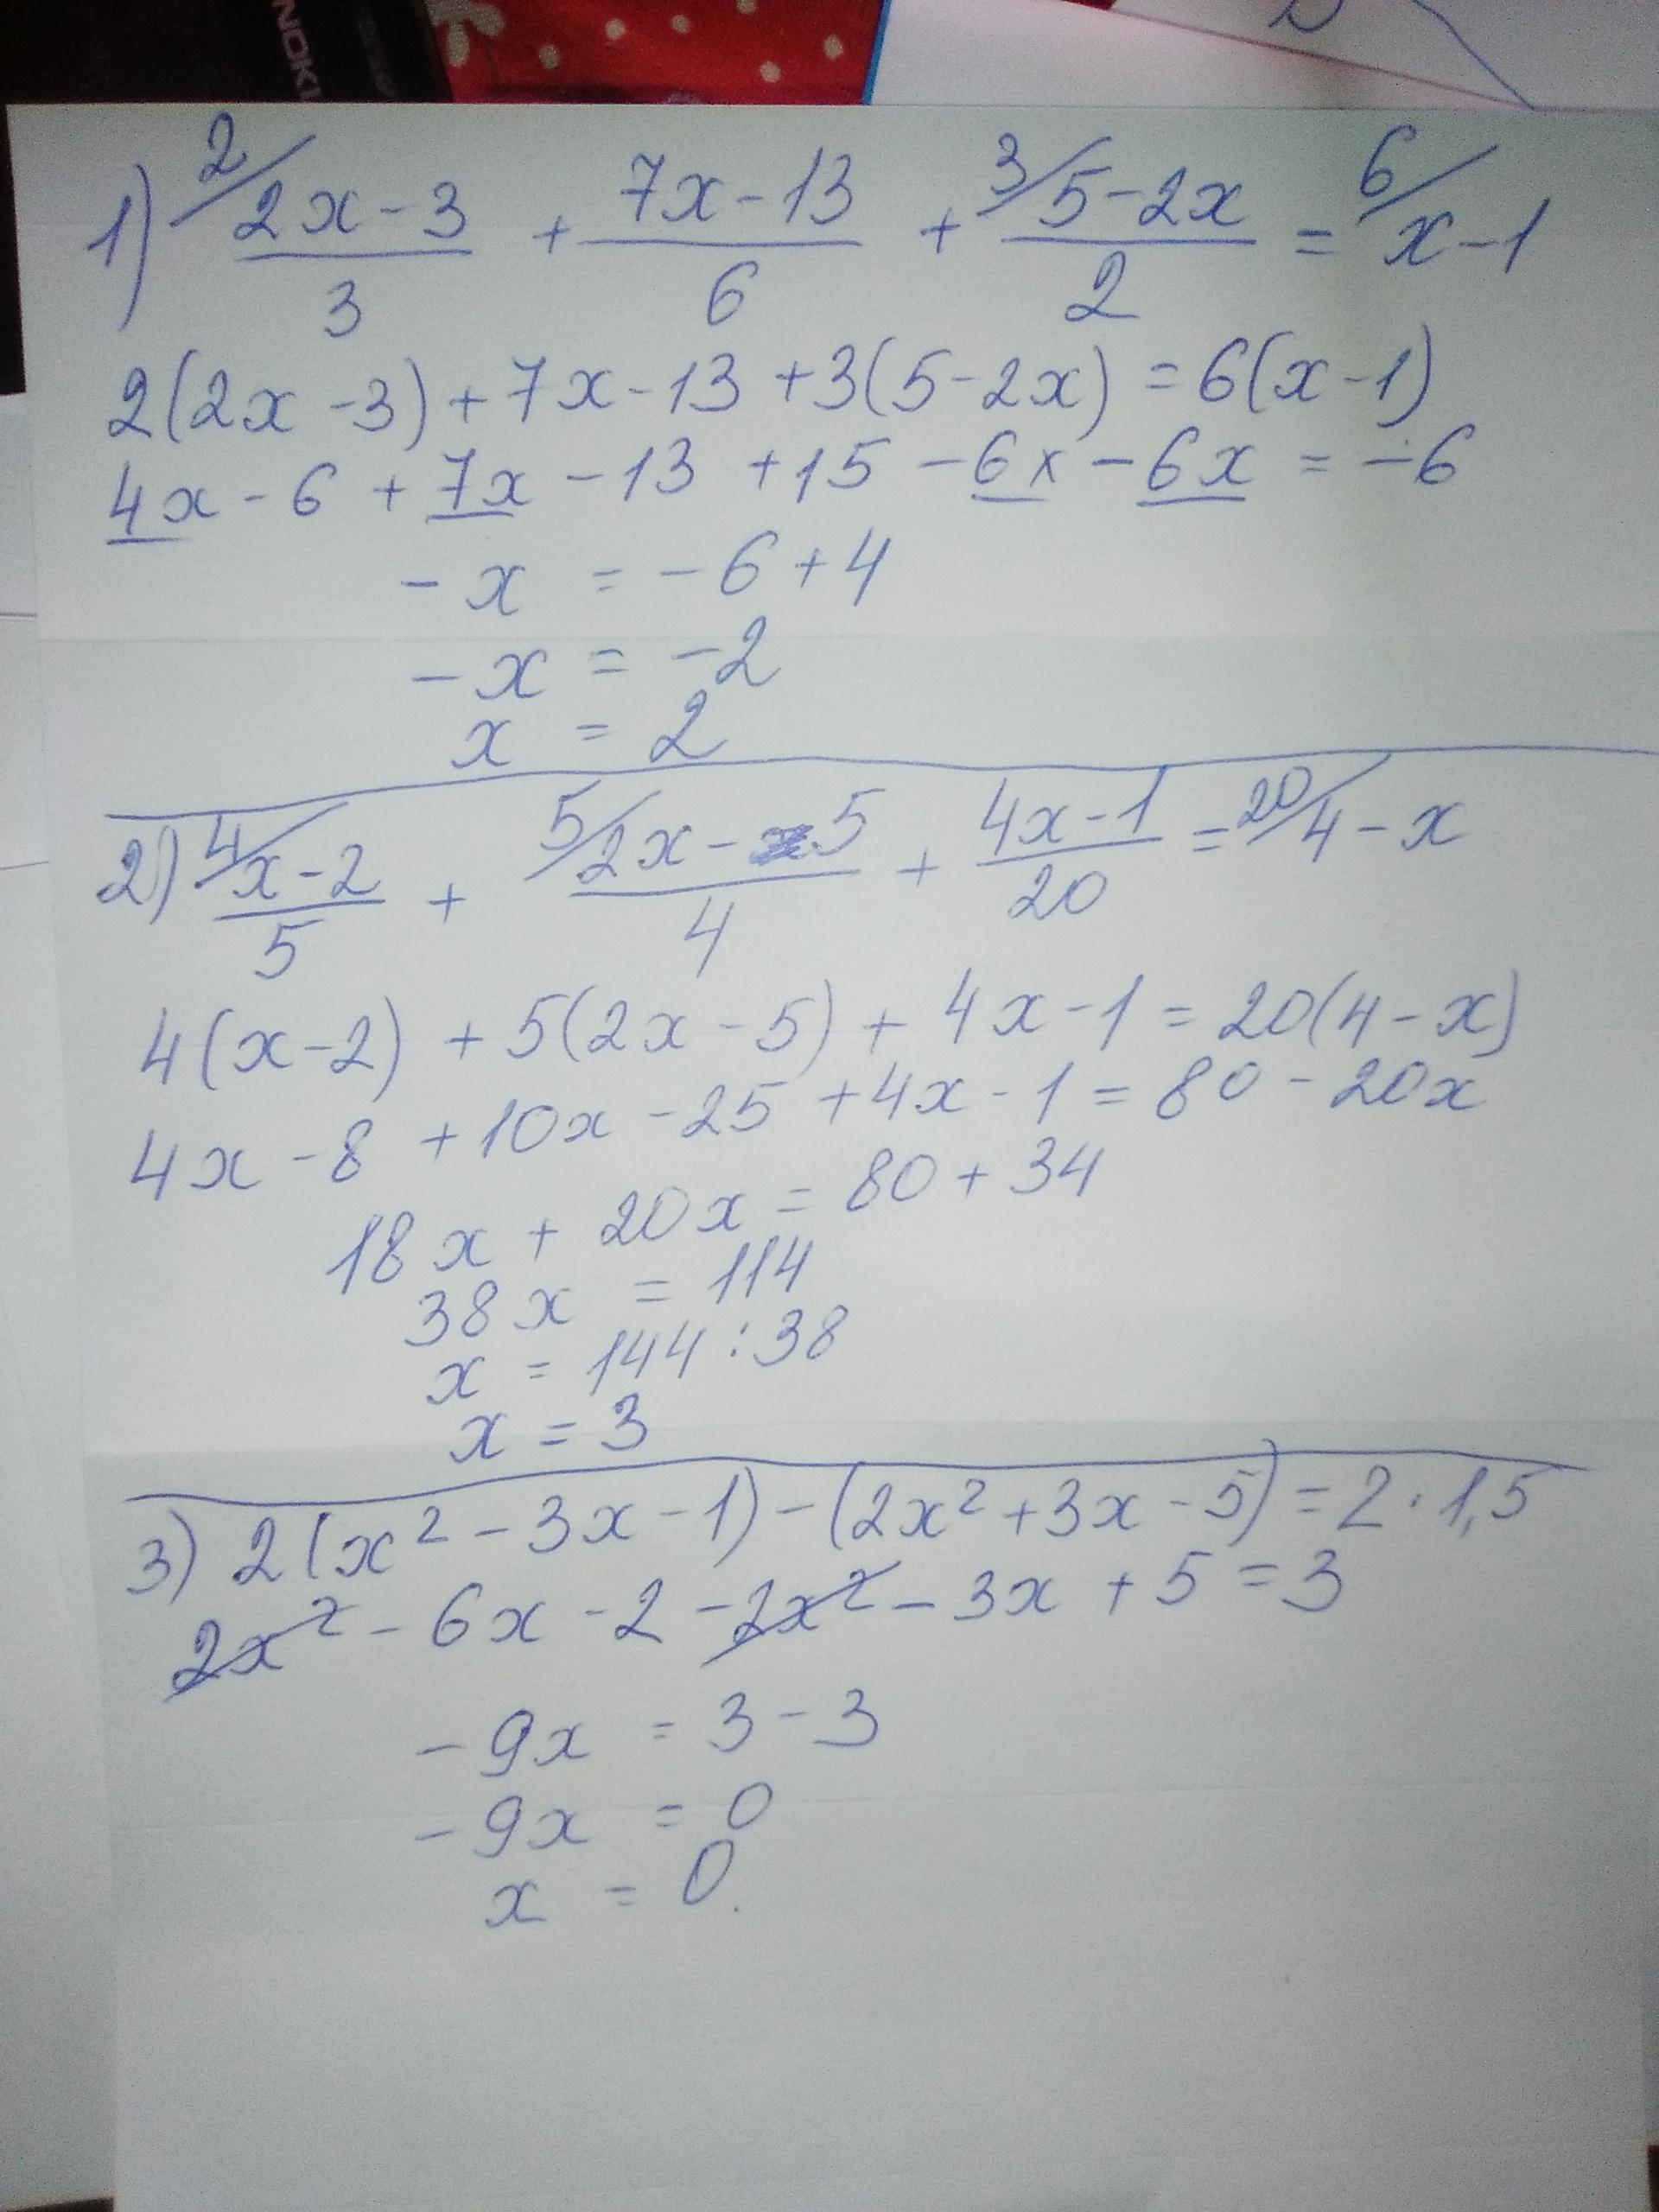 NOKI
1) 2/ 2x-3/3 + 7x-13/6 + 3/ 5-2x/2 = 6/ x-1
2(2x-3)+7x-13+3(5-2x)=6(x-1)
4x-6+7x-13+15-6x-6x=-6
-x=-6+4
-x=-2
x=2
2) 4/ x-2/5 + 5/ 2x-5/4 + 4x-1/20 = 20/ 4-x
4(x-2)+5(2x-5)+4x-1=20(4-x)
4x-8+10x-25+4x-1=80-20x
18x+20x=80+34
38x=114
x=144:38
x=3
3) 2(x²-3x-1)-(2x²+3x-5)=2·1,5
2x²-6x-2-2x²-3x+5=3
-9x=3-3
-9x=0
x=0.